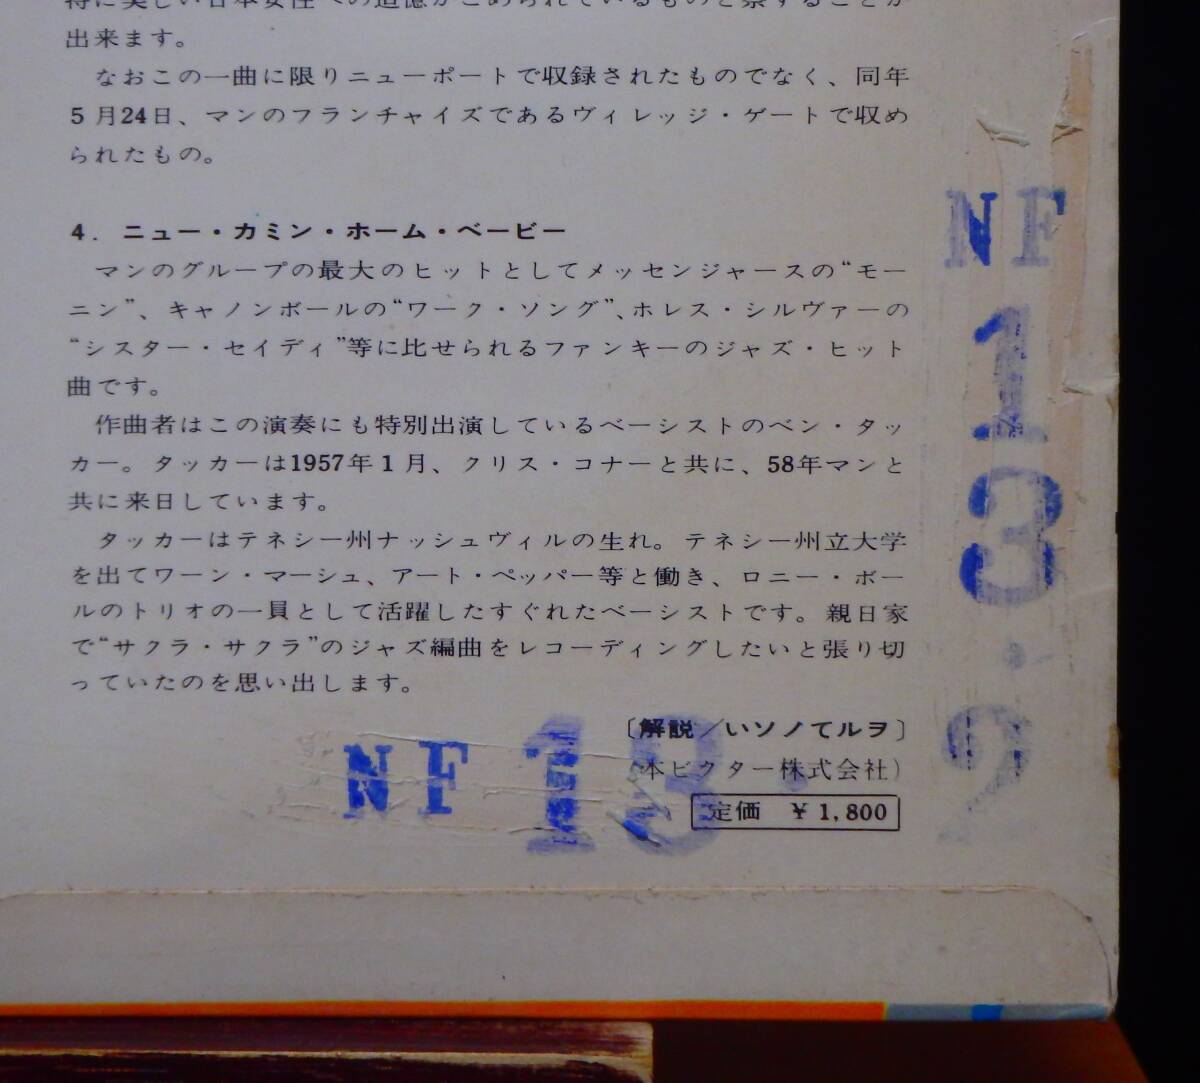 特に美しい日本女性への追憶がこめられているものと察することが
出来ます。
なおこの一曲に限りニューポートで収録されたものでなく、同年
5月24日、マンのフランチャイズであるヴィレッジ・ゲートで収め
られたもの。
4. ニュー・カミン・ホーム・ベービー
マンのグループの最大のヒットとしてメッセンジャースの“モー
ニン”、キャノンボールの“ワーク・ソング”、ホレス・シルヴァーの
“シスター・セイディ”等に比せられるファンキーのジャズ・ヒット
曲です。
作曲者はこの演奏にも特別出演しているベーシストのベン・タッ
カー。タッカーは1957年1月、クリス・コナーと共に、58年マンと
共に来日しています。
タッカーはテネシー州ナッシュヴィルの生れ。テネシー州立大学
を出てワーン・マーシュ、アート・ペッパー等と働き、ロニー・ボー
ルのトリオの一員として活躍したすぐれたベーシストです。親日家
で“サクラ・サクラ”のジャズ編曲をレコーディングしたいと張り切
っていたのを思い出します。
〔解説/いソノてルヲ〕
本ビクター株式会社)
定価 ¥1,800
NF 13
NF 13・2